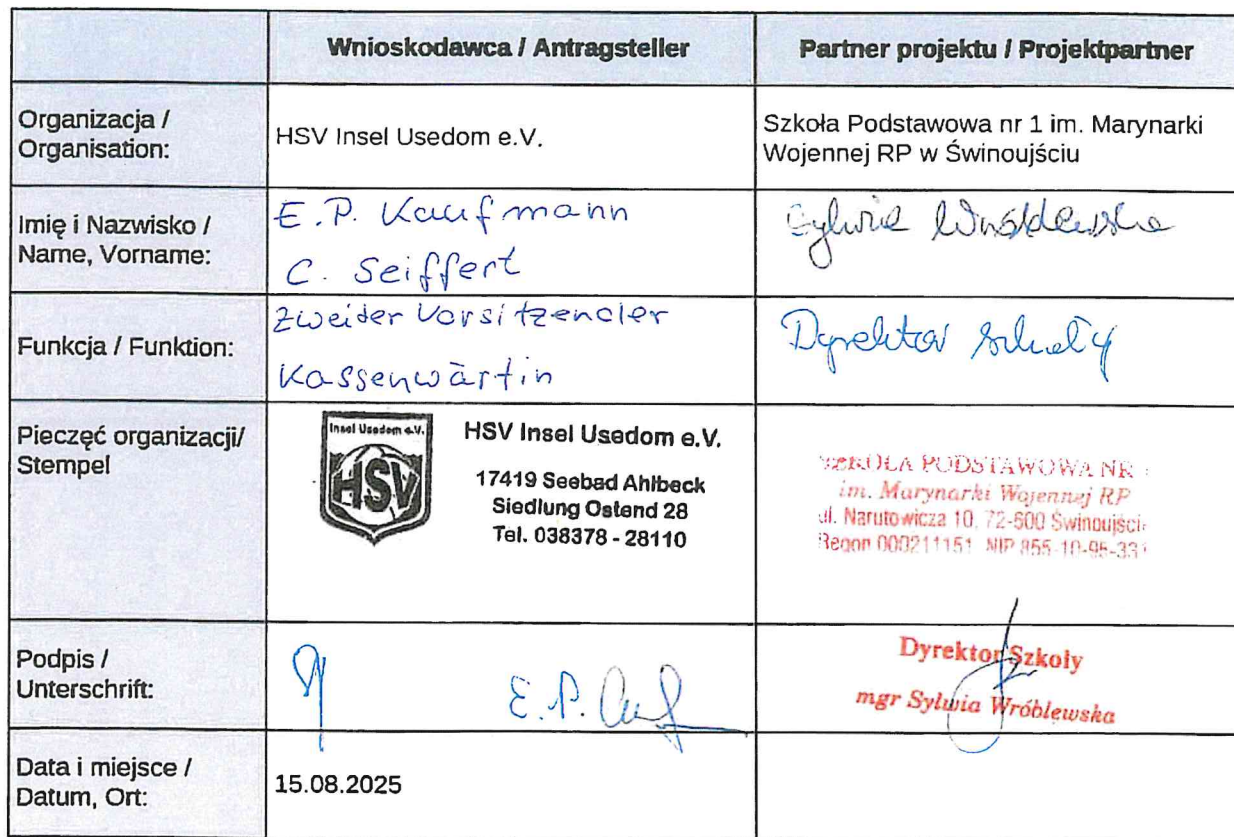 Wnioskodawca / Antragsteller
Partner projektu / Projektpartner
Organizacja /
Organisation:
HSV Insel Usedom e.V.
Szkoła Podstawowa nr 1 im. Marynarki
Wojennej RP w Świnoujściu
Imię i Nazwisko /
Name, Vorname:
E.P. Kaufmann
C. Seiffert
Sylwia Wróblewska
Funkcja / Funktion:
Zweiter Vorsitzender
Kassenwärtin
Dyrektor szkoły
Pieczęć organizacji/
Stempel
Insel Usedom e.V.
HSV
HSV Insel Usedom e.V.
17419 Seebad Ahlbeck
Siedlung Ostend 28
Tel. 038378 - 28110
SZKOŁA PODSTAWOWA NR
im. Marynarki Wojennej RP
ul. Narutowicza 10, 72-600 Świnoujści
Regon 000211151 NIP 855-10-95-331
Podpis /
Unterschrift:
E. P.
Dyrektor Szkoły
mgr Sylwia Wróblewska
Data i miejsce /
Datum, Ort:
15.08.2025